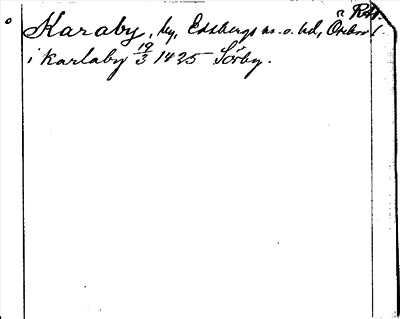 RA.
Karaby, by, Edsbergs sn. o. hd, Örebro l.
i karlaby 19/3 1425 Sörby.